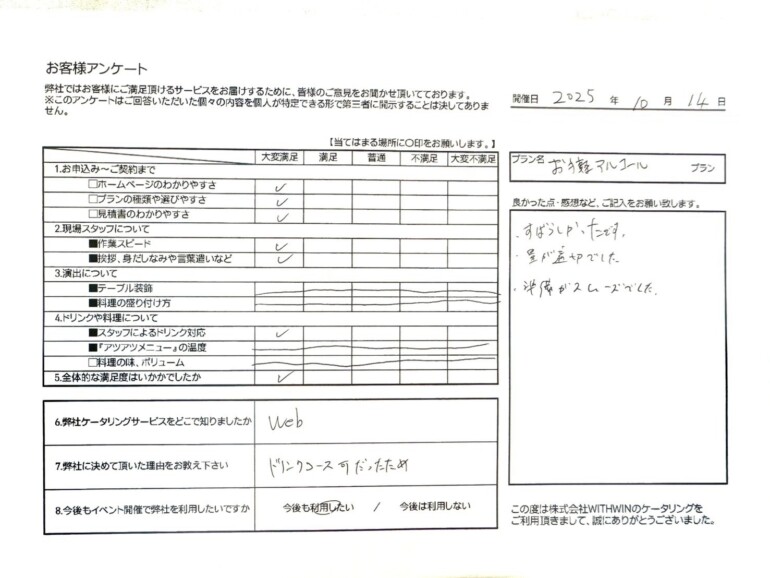 お客様アンケート
弊社ではお客様にご満足頂けるサービスをお届けするために、皆様のご意見をお聞かせ頂いております。
※このアンケートはご回答いただいた個々の内容を個人が特定できる形で第三者に開示することは決してありま
せん。
開催日 2025 年 10 月 14 日
【当てはまる場所に○印をお願いします。】
大変満足 満足 普通 不満足 大変不満足
1.お申込み～ご契約まで
□ホームページのわかりやすさ ✓
□プランの種類や選びやすさ ✓
□見積書のわかりやすさ ✓
2.現場スタッフについて
■作業スピード ✓
■挨拶、身だしなみや言葉遣いなど ✓
3.演出について
■テーブル装飾
■料理の盛り付け方
4.ドリンクや料理について
■スタッフによるドリンク対応 ✓
■『アツアツメニュー』の温度
□料理の味、ボリューム
5.全体的な満足度はいかがでしたか ✓
6.弊社ケータリングサービスをどこで知りましたか Web
7.弊社に決めて頂いた理由をお教え下さい ドリンクコース可だったため
8.今後もイベント開催で弊社を利用したいですか 今後も利用したい / 今後は利用しない
プラン名 お手軽アルコール プラン
良かった点・感想など、ご記入をお願い致します。
・すばらしかったです。
・量が適切でした
・準備がスムーズでした。
この度は株式会社WITHWINのケータリングを
ご利用頂きまして、誠にありがとうございました。